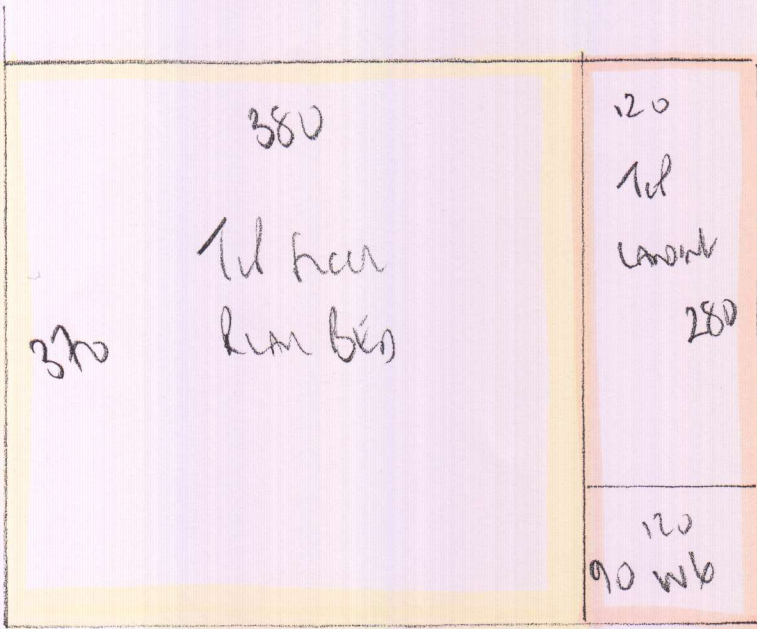 380
Top Floor
Rear Bed
370
120
Top
Landing
280
120
90 W6